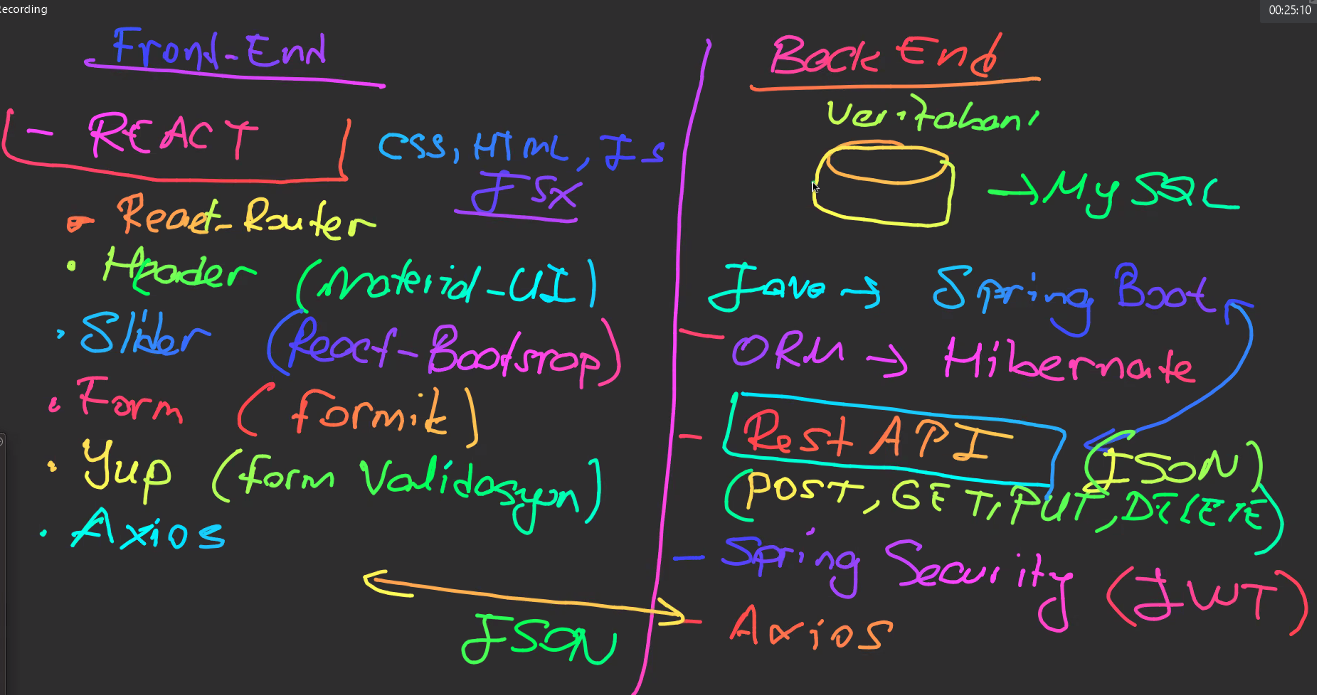 Recording
00:25:10
Frond-End
- REACT
CSS, HTML, Js
JSX
React-Router
• Header (Material-UI)
• Slider (React-Bootsrap)
• Form (formik)
• Yup (form Validasyon)
• Axios
JSON
Back End
Veritabanı
→ MySQL
Java → Spring Boot
- ORM → Hibernate
- Rest API (JSON)
(POST, GET, PUT, DELETE)
- Spring Security (JWT)
- Axios